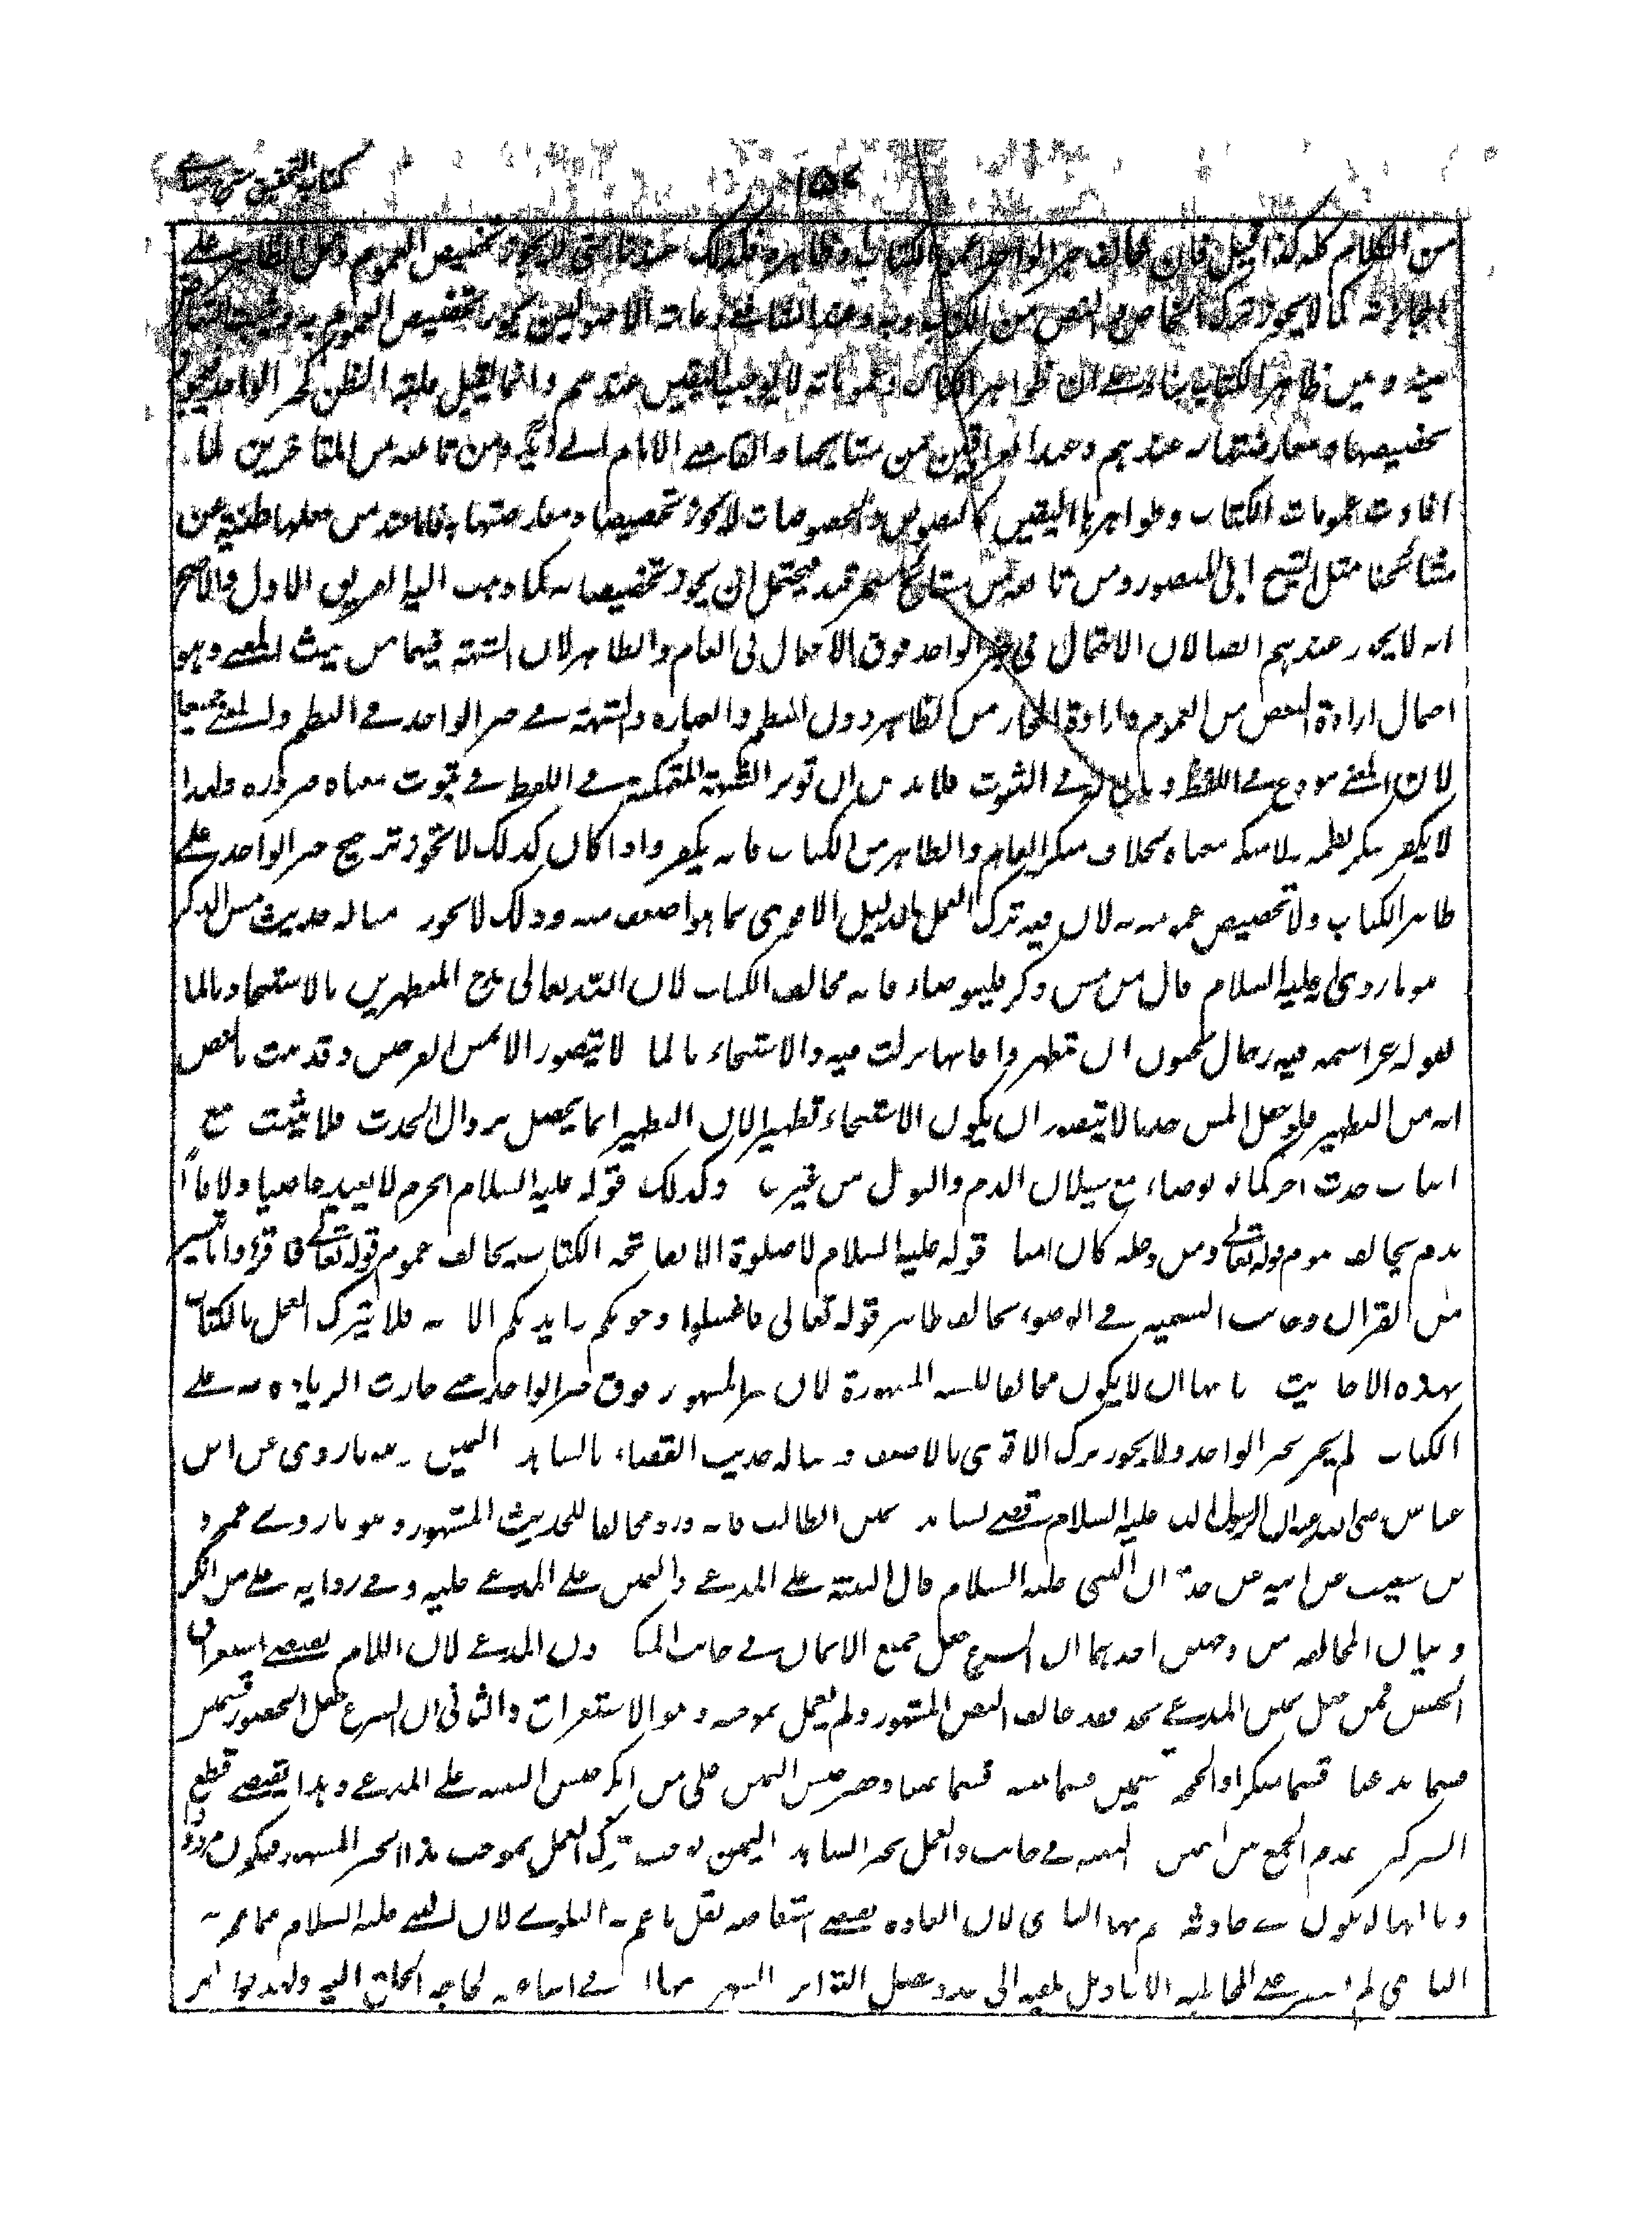 كتاب التحقيق شرح حسامي
١٥٤
من الكلام كله كذا قيل فان خالف خبر الواحد عموم الكتاب او ظاهره فكذلك عندنا حتى لا يجوز تخصيص العموم وحمل الظاهر على
المجاز به كما لا يجوز ترك الخاص والنص من الكتاب به وعند الشافعي وعامة الاصوليين يجوز تخصيص العموم به ويثبت التعارض
بينه وبين ظاهر الكتاب بناء على ان ظواهر الكتاب وعموماته لا يوجب اليقين عندهم وانما يفيد غلبة الظن كخبر الواحد فيجوز
تخصيصها ومعارضتها به عندهم وعند العراقيين من مشايخنا والقاضي الامام ابي زيد ومن تابعه من المتاخرين لما
افادت عمومات الكتاب وظواهرها اليقين كالنصوص والخصوصات لا يجوز تخصيصها ومعارضتها به فاما عند من جعلها ظنية من
مشائخنا مثل الشيخ ابي المنصور ومن تابعه من مشايخ سمرقند فيحتمل ان يجوز تخصيصها به كما ذهب اليه الفريق الاول والاصح
انه لا يجوز عندهم ايضا لان الاحتمال في خبر الواحد فوق الاحتمال في العام والظاهر لان الشبهة فيهما من حيث المعنى وهو
احتمال ارادة البعض من العموم وارادة المجاز من الظاهر دون النظم والعبارة والشبهة في خبر الواحد في النظم والمعنى جميعا
لان المعنى مودع في اللفظ وتابع له في الثبوت فلا بد من ان تؤثر الشبهة المتمكنة في اللفظ في ثبوت معناه ضرورة ولهذا
لا يكفر منكر لفظه ولا منكر معناه بخلاف منكر العام والظاهر من الكتاب فانه يكفر واذا كان كذلك لا يجوز ترجيح خبر الواحد على
ظاهر الكتاب ولا تخصيص عمومه به لان فيه ترك العمل بالدليل الاقوى بما هو اضعف منه وذلك لا يجوز مثاله حديث مس الذكر
هو ما روي انه عليه السلام قال من مس ذكره فليتوضاء فانه مخالف الكتاب لان الله تعالى مدح المتطهرين بالاستنجاء بالماء
بقوله عز اسمه فيه رجال يحبون ان يتطهروا فانها نزلت فيه والاستنجاء بالماء لا يتصور الا بمس الفرجين وقد ثبت بالنص
انه من التطهير فلو جعل المس حدثا لا يتصور ان يكون الاستنجاء تطهيرا لان التطهير انما يحصل بزوال الحدث فلا يثبت مع
اثبات حدث اخر كما لو توضاء مع سيلان الدم والبول من غير عذر وكذلك قوله عليه السلام الحرم لا يعيذ عاصيا ولا فارا
بدم يخالف عموم قوله تعالى ومن دخله كان امنا قوله عليه السلام لا صلوة الا بفاتحة الكتاب يخالف عموم قوله تعالى فاقرؤا ما تيسر
من القران وحديث التسمية في الوضوء يخالف ظاهر قوله تعالى فاغسلوا وجوهكم وايديكم الاية فلا يترك العمل بالكتاب
بهذه الاحاديث ثانيها ان لا يكون مخالفا للسنة المشهورة لان الخبر المشهور فوق خبر الواحد حتى جازت الزيادة به على
الكتاب لم يجز بخبر الواحد ولا يجوز ترك الاقوى بالاضعف ومثاله حديث القضاء بالشاهد اليمين وهو ما روى عن ابن
عباس رضي الله عنه ان الرسول الله عليه السلام قضى بشاهد يمين الطالب فانه ورد مخالفا للحديث المشهور وهو ما روى عمرو
بن شعيب عن ابيه عن جده ان النبي عليه السلام قال البينة على المدعي واليمين على المدعى عليه وفي رواية على من انكر
وبيان المخالفة من وجهين احدهما ان الشرع جعل جميع الايمان في جانب المنكر دون المدعي لان اللام يقتضي استغراق
الجنس فمن جعل يمين المدعي حجة فقد خالف النص المشهور ولم يعمل بموجبه وهو الاستغراق والثاني ان الشرع جعل الخصوم قسمين
قسما مدعيا قسما منكرا والحجة قسمين قسما بينة قسما يمينا وحصر جنس اليمين على من انكر جنس البينة على المدعي وهذا يقتضي قطع
الشركة عدم الجمع بين اليمين البينة في جانب والعمل بخبر الشاهد اليمين يوجب ترك العمل بموجب هذا الخبر المشهور فيكون مردودا
وثالثها ان لا يكون في حادثة يعم بها البلوى لان العادة يقتضي استفاضة نقل ما يعم به البلوى لان النبي عليه السلام فيما عم به
البلوى لم يقتصر على مخاطبة الاحاد بل يلقيه الى عدد يحصل التواتر الشهرة مبالغة في اشاعته لحاجة الخلق اليه ولهذا تواتر